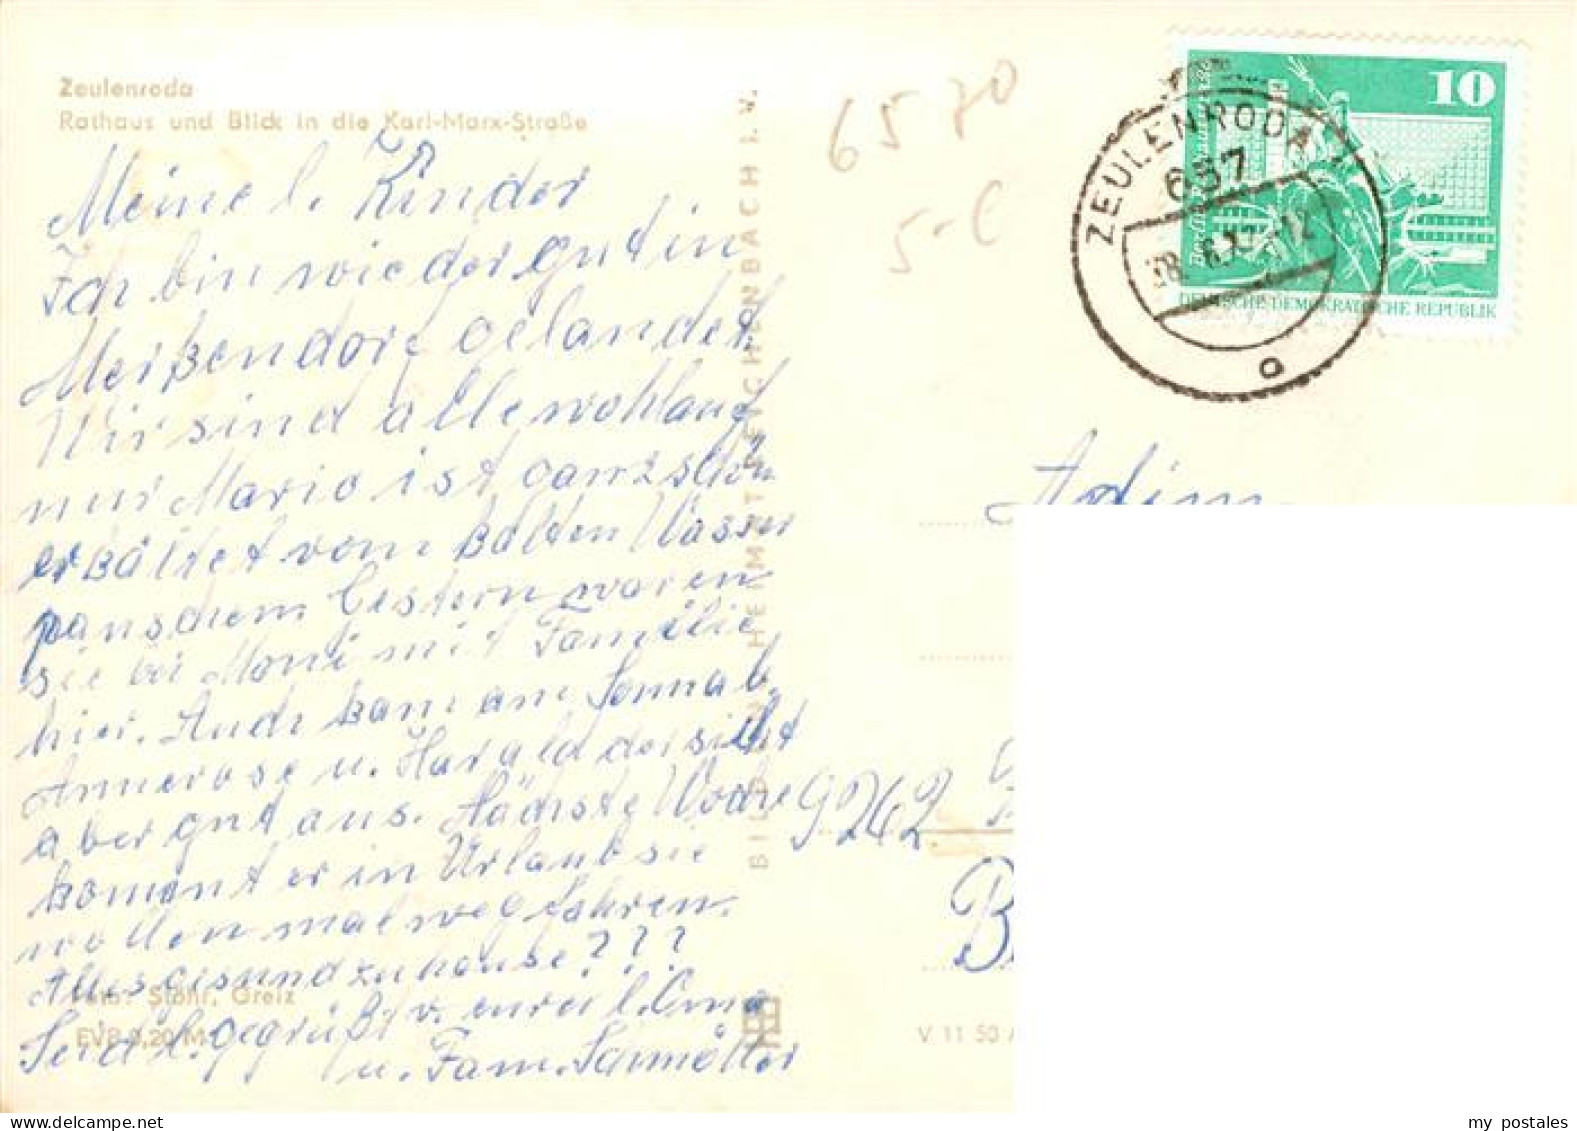 Zeulenroda
Rathaus und Blick in die Karl-Marx-Straße
Meine l. Kinder
Ich bin wieder gut in
gelandet.
Wir sind alle wohlauf
nur Mario ist ganz schön
erkältet vom kalten Wasser
panschem Gestern waren
sie bei Moni mit Familie
hier. Auch kam am Sonnab.
Annerose u. Harald der sieht
aber gut aus. Nächste Woche
kommt er in Urlaub sie
wollen mal wegfahren.
Alles gesund zuhause???
Seid l. gegrüßt v. eurer l. Oma
u. Fam.
Foto: Stöhr, Greiz
EVP 0,20 M
BILD UND HEIMAT REICHENBACH I. V.
6570
5-C
ZEULENRODA 1
657
a
10
DEUTSCHE DEMOKRATISCHE REPUBLIK
9262
V 11 50
my postales